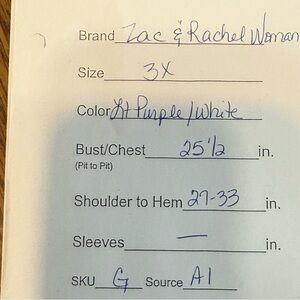 Brand Zac & Rachel Woman
Size 3X
Color Lt Purple/White
Bust/Chest 25 1/2 in.
(Pit to Pit)
Shoulder to Hem 27-33 in.
Sleeves — in.
SKU G Source A1